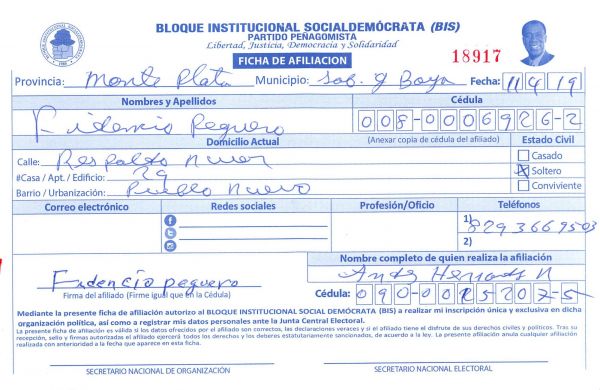 BLOQUE INSTITUCIONAL SOCIALDEMÓCRATA (BIS)
PARTIDO PEÑAGOMISTA
Libertad, Justicia, Democracia y Solidaridad
FICHA DE AFILIACION
18917
Provincia: Monte Plata Municipio: Sab. g Boya Fecha: 11/4/19
Nombres y Apellidos Cédula
Fidencio Peguero 008-0006926-2
Domicilio Actual (Anexar copia de cédula del afiliado) Estado Civil
Calle: Respaldo Casado
#Casa / Apt. / Edificio: 29 Soltero
Barrio / Urbanización: Pueblo Nuevo Conviviente
Correo electrónico Redes sociales Profesión/Oficio Teléfonos
1) 8293669503
2)
Nombre completo de quien realiza la afiliación
Fidencio peguero
Firma del afiliado (Firme igual que en la Cédula) Cédula: 090-0015207-5
Mediante la presente ficha de afiliación autorizo al BLOQUE INSTITUCIONAL SOCIAL DEMÓCRATA (BIS) a realizar mi inscripción única y exclusiva en dicha
organización política, así como a registrar mis datos personales ante la Junta Central Electoral.
La presente ficha de afiliación es válida si los datos ofrecidos por el afiliado son correctos, las declaraciones veraces y si el afiliado tiene el disfrute de sus derechos civiles y políticos. Tras su
recepción, sello y firmas autorizadas el afiliado ejercerá todos los derechos y los deberes estatutariamente sancionados, de acuerdo a la ley. La presente afiliación anula cualquier afiliación
realizada con anterioridad a la fecha que aparece en esta ficha.
SECRETARIO NACIONAL DE ORGANIZACIÓN SECRETARIO NACIONAL ELECTORAL